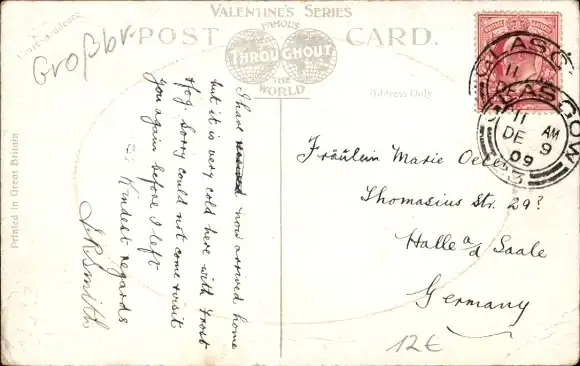 VALENTINE'S SERIES
FAMOUS
THROUGHOUT
THE
WORLD
POST CARD.
Großbr.
Address Only
Printed in Great Britain
I have now arrived home
but it is very cold here with frost
& fog. Sorry could not come & visit
you again before I left
Kindest regards
J R Smith
GLASGOW
11 AM
DE 9
09
Fräulein Marie
Thomasius Str. 29?
Halle a/d Saale
Germany
12€